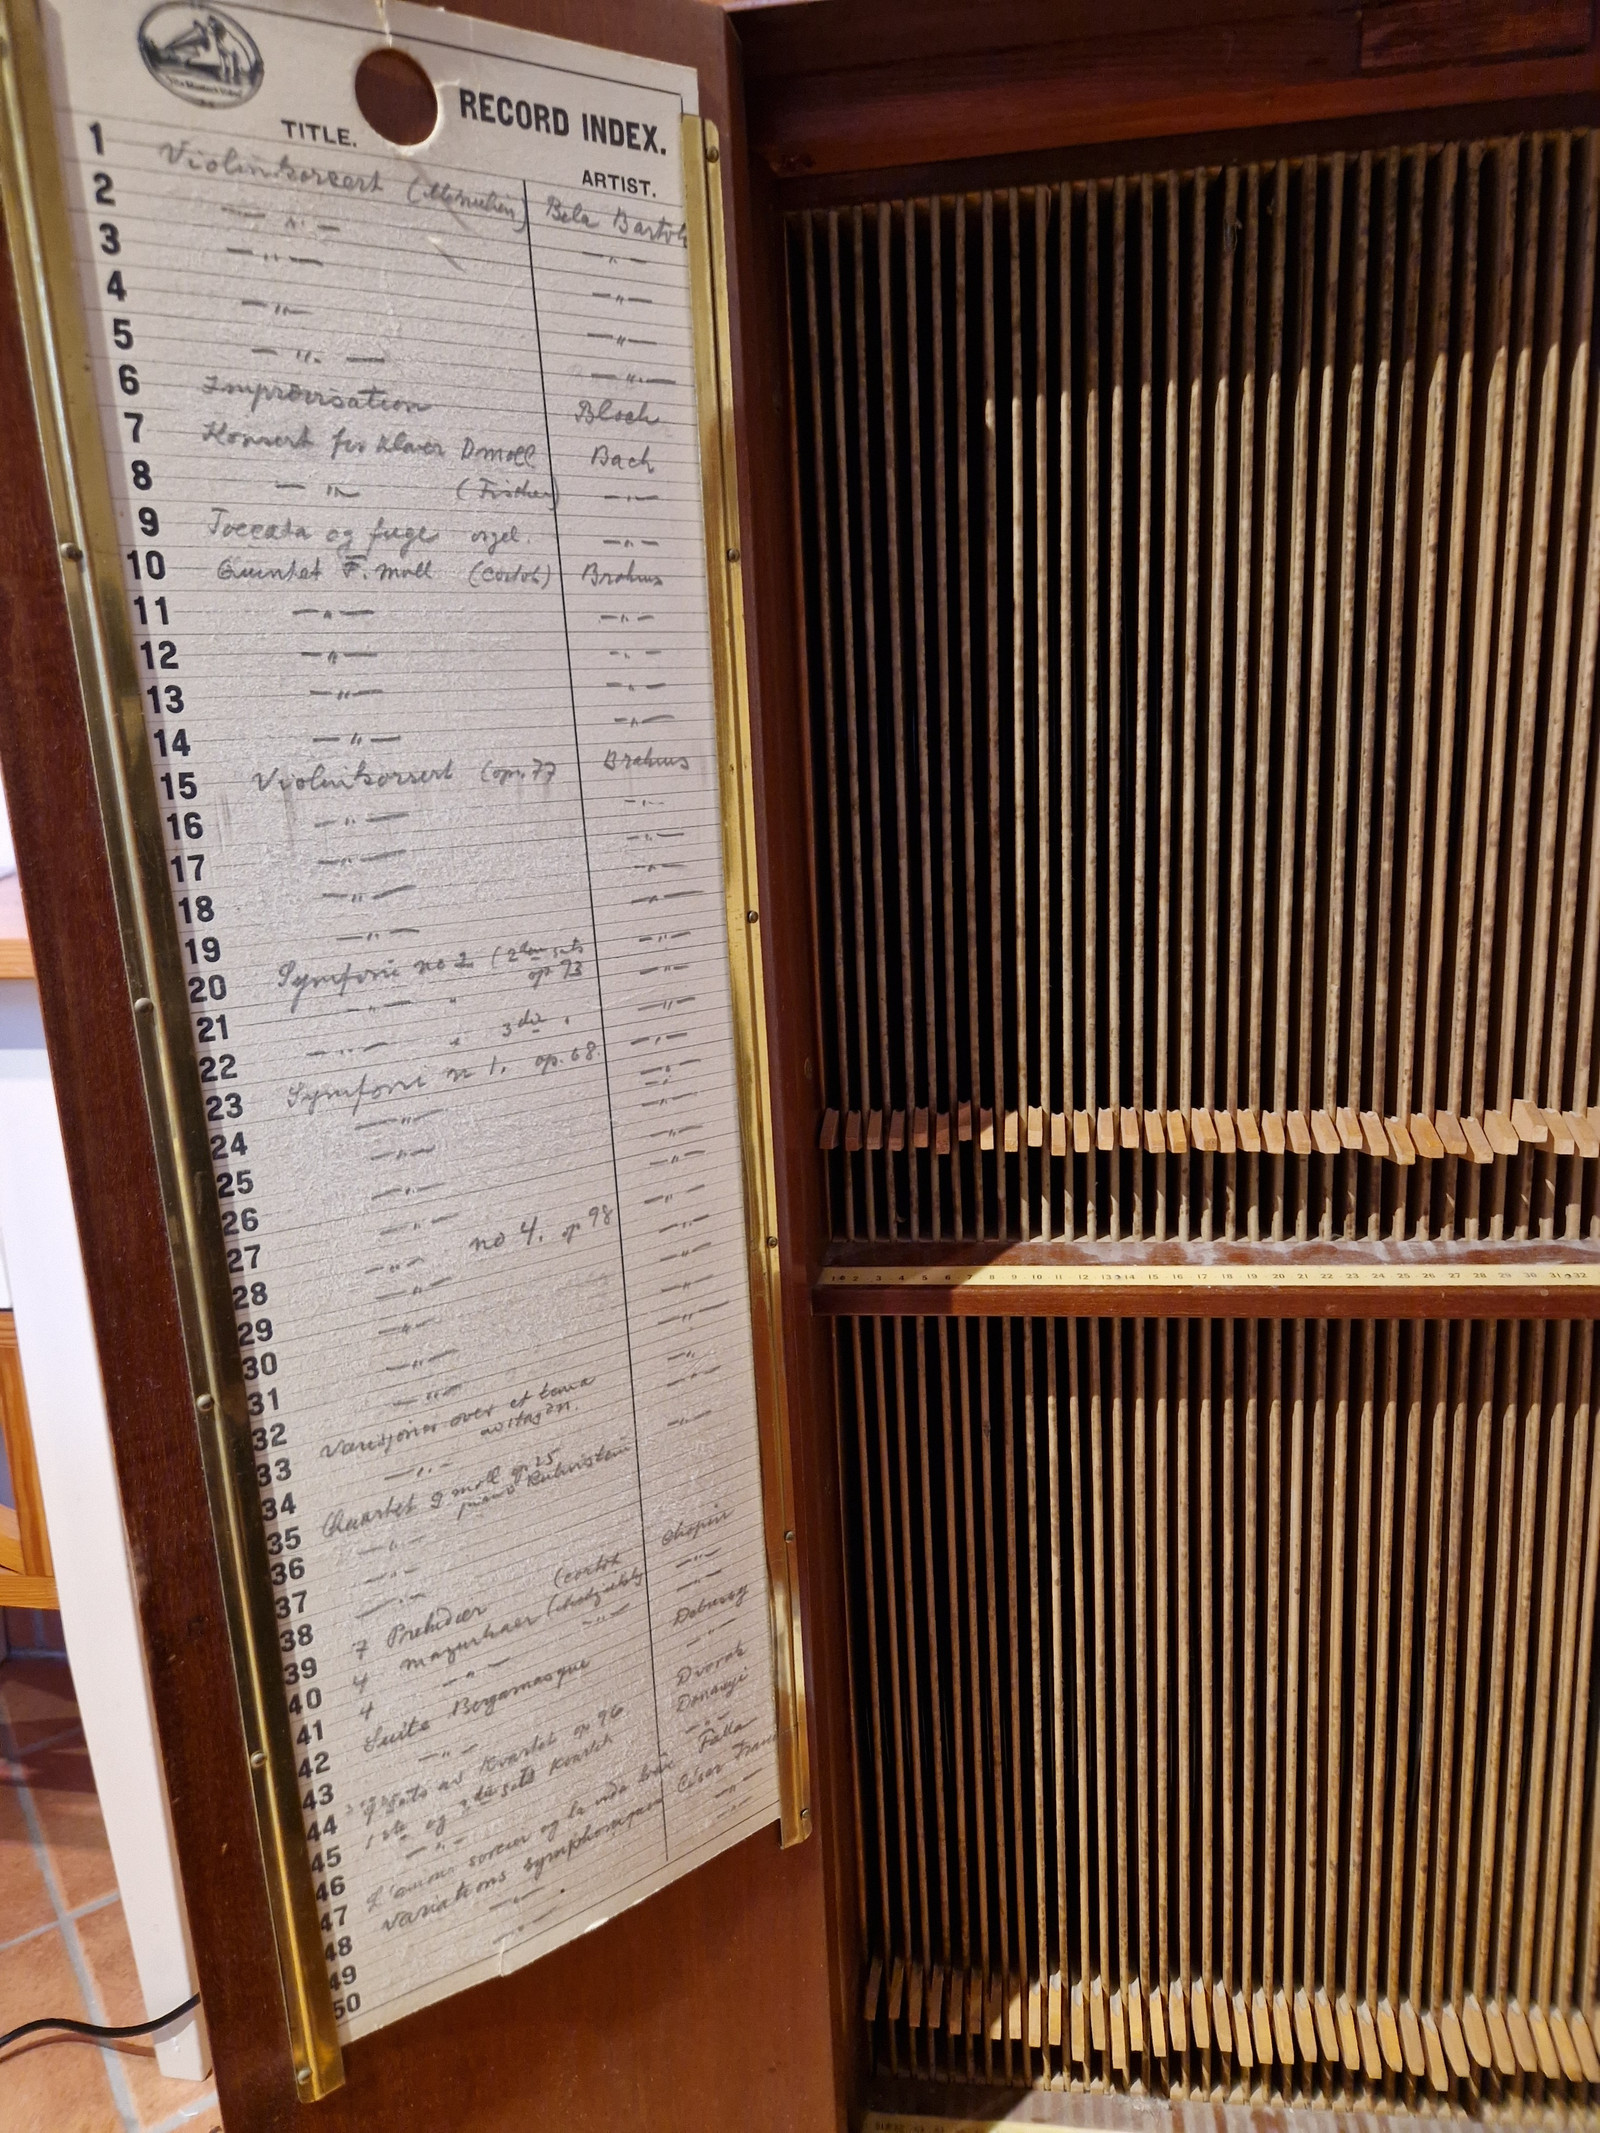 "His Master's Voice"
RECORD INDEX.
TITLE. ARTIST.
1 Violinkonsert (Menuhin) Bela Bartok
2 —"— —"—
3 —"— —"—
4 —"— —"—
5 —"— —"—
6 Improvisation Bloch
7 Konsert for klaver D moll Bach
8 —"— (Fischer) —"—
9 Toccata og fuge orgel. —"—
10 Quintet F. moll (Cortot) Brahms
11 —"— —"—
12 —"— —"—
13 —"— —"—
14 —"— —"—
15 Violinkonsert (op. 77 Brahms
16 —"— —"—
17 —"— —"—
18 —"— —"—
19 —"— —"—
20 Symfoni no 2 (2den sats —"—
op 73
21 —"— " —"—
22 —"— " 3die " —"—
23 Symfoni n 1. op. 68. —"—
24 —"— —"—
25 —"— —"—
26 —"— —"—
27 —"— —"—
28 —"— no 4. op 98 —"—
29 —"— —"—
30 —"— —"—
31 —"— —"—
32 —"— —"—
33 Variasjoner over et tema —"—
av Haydn.
34 —"— —"—
35 Quartet G moll op. 25
piano Rubinstein
36 —"—
37 —"—
38 —"—
39 7 Preludier (Cortot Chopin
40 4 mazurkaer —"—
41 4 —"— —"— —"—
42 Suite Bergamasque Debussy
43 —"— —"—
44 sats av Kvartet op 96 Dvorak
45 1ste og 2den sats Kvartet Donanyi
46 —"— —"—
47 L'amour sorcier og la vida breve Falla
48 Variations symphoniques César Franck
49 —"— —"—
50 —"— —"—
1 2 3 4 5 6 7 8 9 10 11 12 13 14 15 16 17 18 19 20 21 22 23 24 25 26 27 28 29 30 31 32